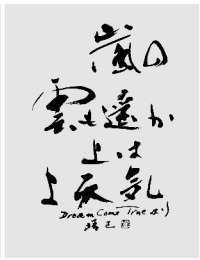 嵐の
雲も遥か
上は
上天気
Dream Come True より